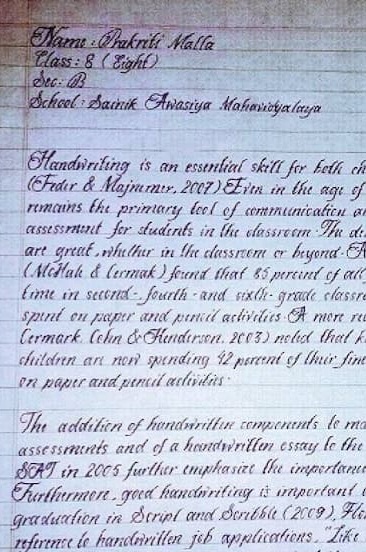 Name : Prakriti Malla
Class : 8 ( Eight)
Sec : B
School : Sainik Awasiya Mahavidyalaya
Handwriting is an essential skill for both ch
(Feder & Majnemer, 2007) Even in the age of
remains the primary tool of communication a
assessment for students in the classroom. The de
are great, whether in the classroom or beyond. A
(McHale & Cermak) found that 85 percent of all
time in second-, fourth- and sixth- grade classro
spent on paper and pencil activities. A more re
Cermark, Cohn & Henderson, 2003) noted that k
children are now spending 42 percent of their fine
on paper and pencil activities.
The addition of handwritten components to ma
assessments and of a handwritten essay to the
SAT in 2005 further emphasize the importance
Furthermore, good handwriting is important
graduation in Script and Scribble (2009), Flo
reference to handwritten job applications, "Like